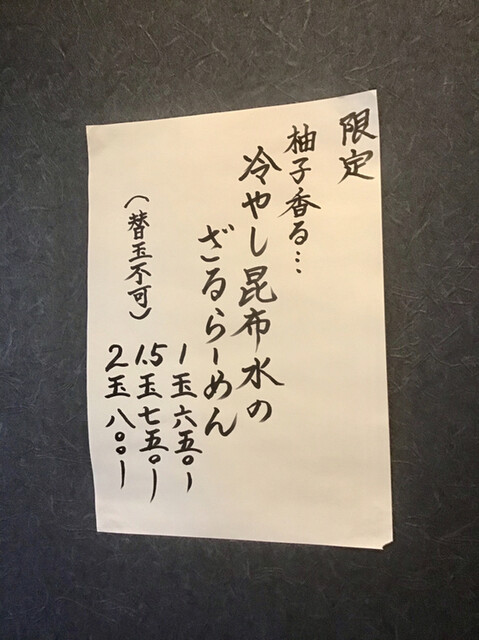 限定
柚子香る…
冷やし昆布水の
ざるらーめん
(替玉不可)
1玉六五〇ー
1.5玉七五〇ー
2玉八〇〇ー